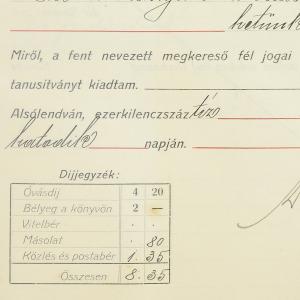 hetünk
Miről, a fent nevezett megkereső fél jogai
tanusítványt kiadtam.
Alsólendván, ezerkilenczszáz tíz
hatodik napján.
Díjjegyzék:
Óvásdíj 4 20
Bélyeg a könyvön 2 —
Vitelbér . .
Másolat . 80
Közlés és postabér 1. 35
Összesen 8. 35